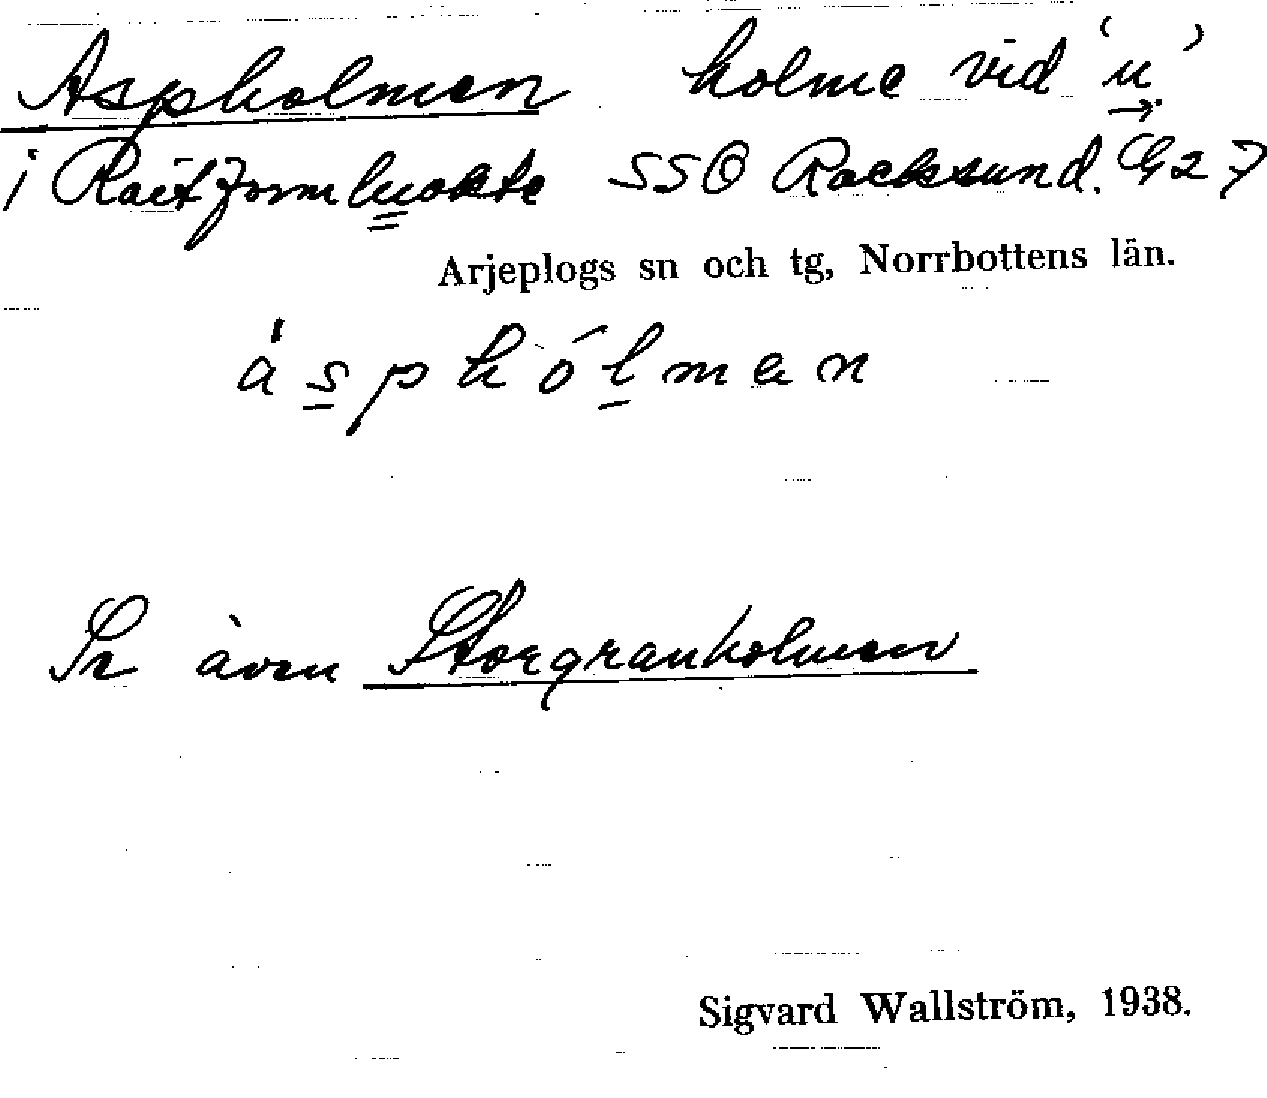 Aspholmen holme vid 'u'
i Raitjormluokte SSO Racksund. G27
Arjeplogs sn och tg, Norrbottens län.
ásphólmen
Se även Storgranholmen
Sigvard Wallström, 1938.